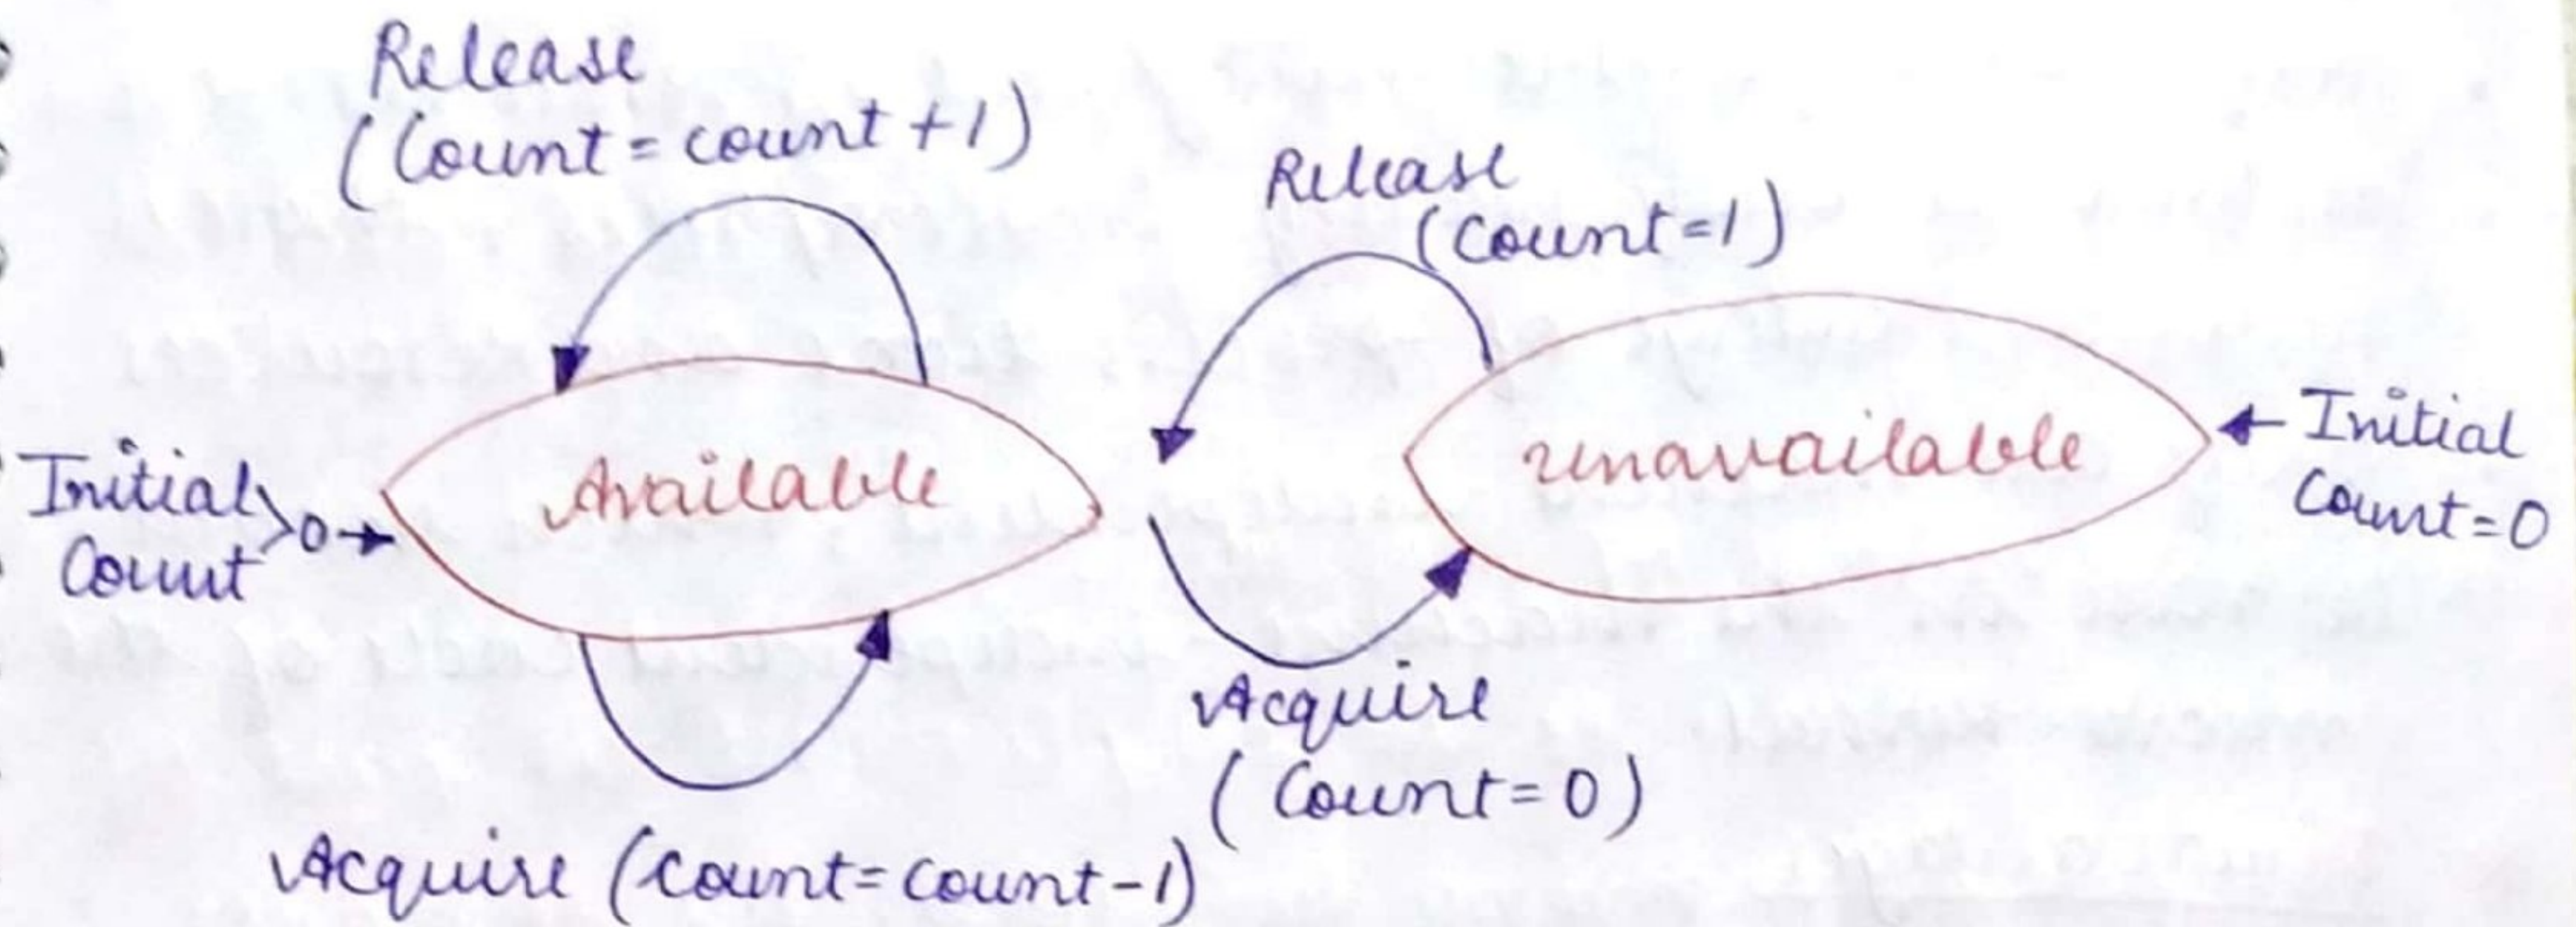 Release
(Count = count +1)
Release
(Count=1)
Initial
Count >0
Available
unavailable
Initial
Count=0
Acquire
(Count=0)
Acquire (Count=Count-1)